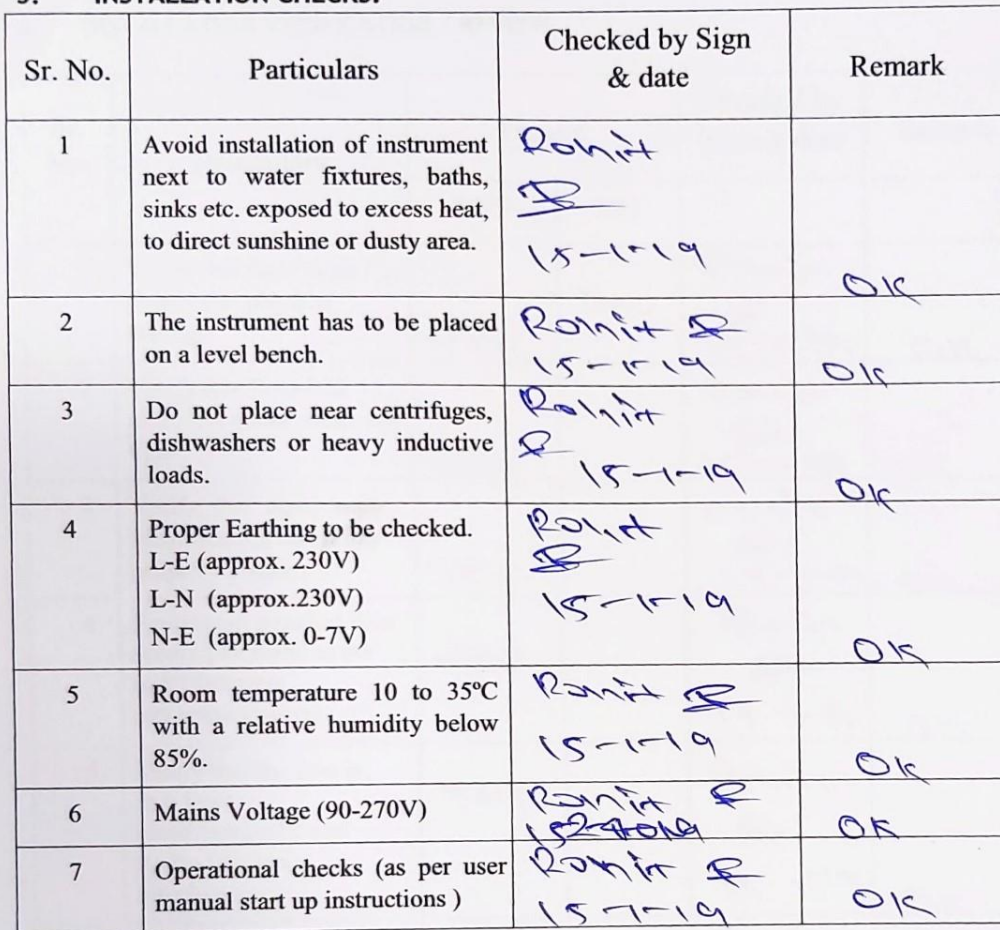 Sr. No. Particulars Checked by Sign & date Remark
1 Avoid installation of instrument Rohit
next to water fixtures, baths,
sinks etc. exposed to excess heat,
to direct sunshine or dusty area. 15-1-19
OK
2 The instrument has to be placed Rohit
on a level bench. 15-1-19 OK
3 Do not place near centrifuges, Rohit
dishwashers or heavy inductive
loads. 15-1-19 OK
4 Proper Earthing to be checked. Rohit
L-E (approx. 230V)
L-N (approx.230V) 15-1-19
N-E (approx. 0-7V) OK
5 Room temperature 10 to 35ºC Rohit
with a relative humidity below 15-1-19
85%. OK
6 Mains Voltage (90-270V) Rohit
OK
7 Operational checks (as per user Rohit
manual start up instructions ) 15-1-19 OK